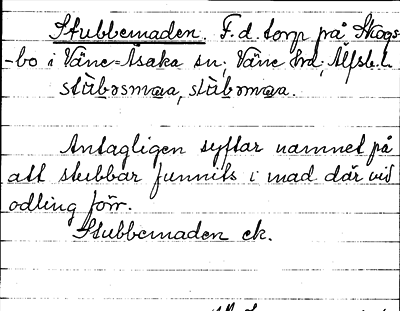 Stubbemaden. F.d. torp på Skogs-
-bo i Väne-Åsaka sn, Väne hd, Älfsb. l.
stùbəsmaa, stùbəmaa.
Antagligen syftar namnet på
att stubbar funnits i mad där vid
odling förr.
Stubbemaden ek.